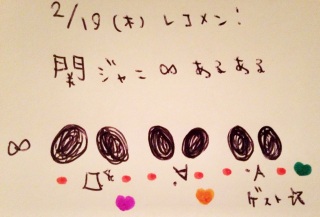 2/19 (木) レコメン!
関ジャニ∞あるある
∞
ゲスト☆